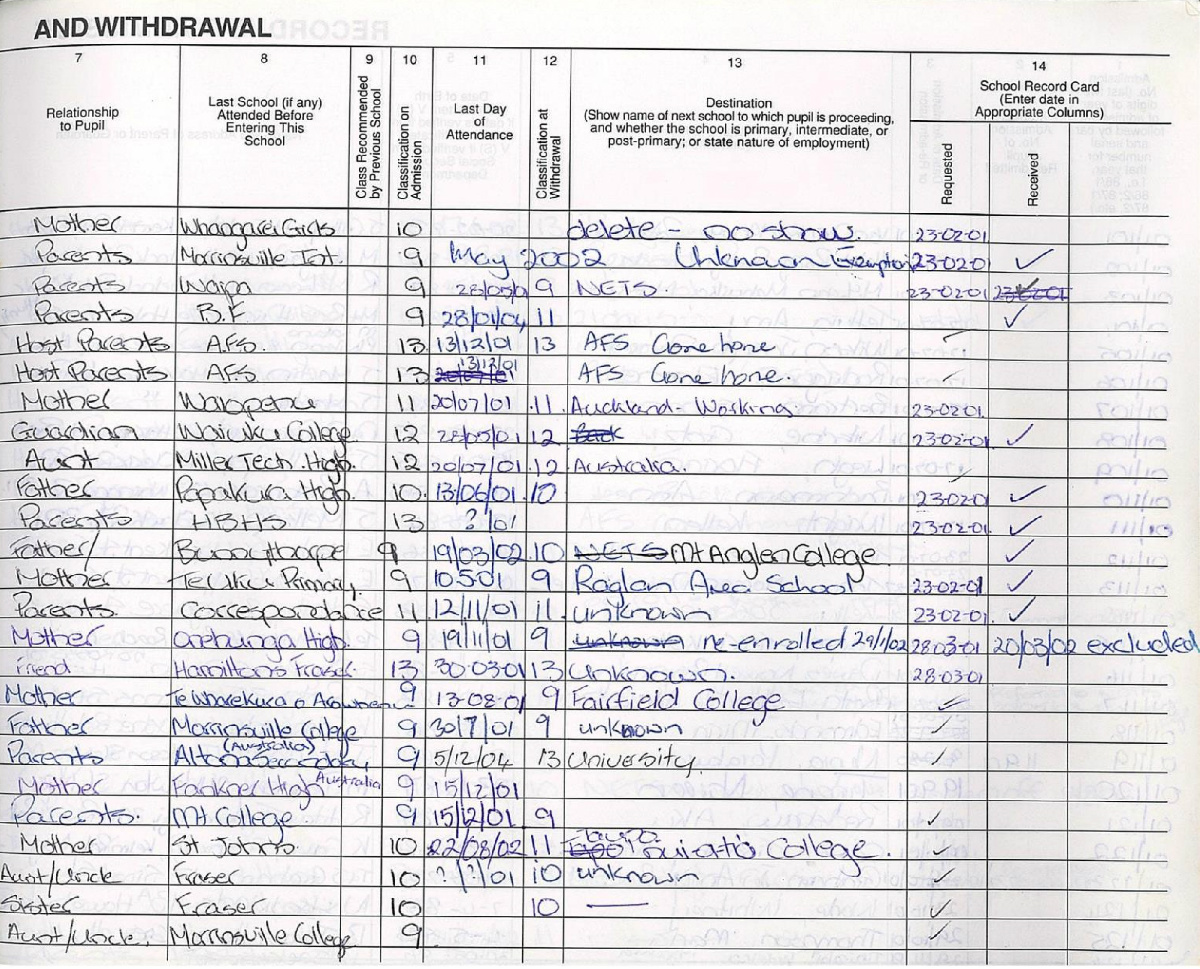 AND WITHDRAWAL
7 8 9 10 11 12 13 14
Relationship to Pupil
Last School (if any) Attended Before Entering This School
Class Recommended by Previous School
Classification on Admission
Last Day of Attendance
Classification at Withdrawal
Destination
(Show name of next school to which pupil is proceeding, and whether the school is primary, intermediate, or post-primary; or state nature of employment)
School Record Card
(Enter date in Appropriate Columns)
Requested
Received
Mother Whangarei Girls 10 delete - no show. 23-02-01
Parents Morrinsville Int. 9 May 2002 Unknown Exemption 23-02-01 ✓
Parents Waipa 9 28/05/01 9 NETS. 23-02-01 23-02-01
Parents B.F 9 28/01/04 11 ✓
Host Parents A.F.S. 13 13/12/01 13 AFS Gone home
Host Parents A.F.S. 13 13/12/01 AFS Gone home.
Mother Waiopehu 11 20/07/01 11. Auckland - Working. 23-02-01.
Guardian Waiuku College 12 25/05/01 12 23-02-01 ✓
Aunt Miller Tech. High. 12 20/07/01. 12 Australia. ✓
Father Papakura High. 10. 13/06/01. 10 23-02-01 ✓
Parents HBHS 13 ?/01 23-02-01. ✓
Father/ Bunnythorpe 9 19/03/02 10 NETS Mt Anglem College ✓
Mother Te Uku Primary. 9 10.5.01 9 Raglan Area School 23-02-01 ✓
Parents Correspondance 11 12/11/01 11. unknown 23-02-01. ✓
Mother Onehunga High. 9 19/11/01 9 unknown re-enrolled 29/1/02 28-03-01 20/03/02 excluded
Friend Hamilton's Fraser. 13 30-03-01 13 Unknown. 28-03-01
Mother Te Wharekura o 9 13-08-01 9 Fairfield College. ✓
Father Morrinsville College 9 30/7/01 9 unknown ✓
Parents Altona Secondary (Australia) 9 5/12/04 13 University. ✓
Mother Fawkner High Australia 9 15/12/01
Parents. Mt College 9 15/12/01 9 ✓
Mother St Johns 10 22/08/02 11 Taupo nui-a-tia College. ✓
Aunt/Uncle Fraser 10 ?/?/01 10 unknown ✓
Sister Fraser 10 10 — ✓
Aunt/Uncle. Morrinsville College 9 ✓